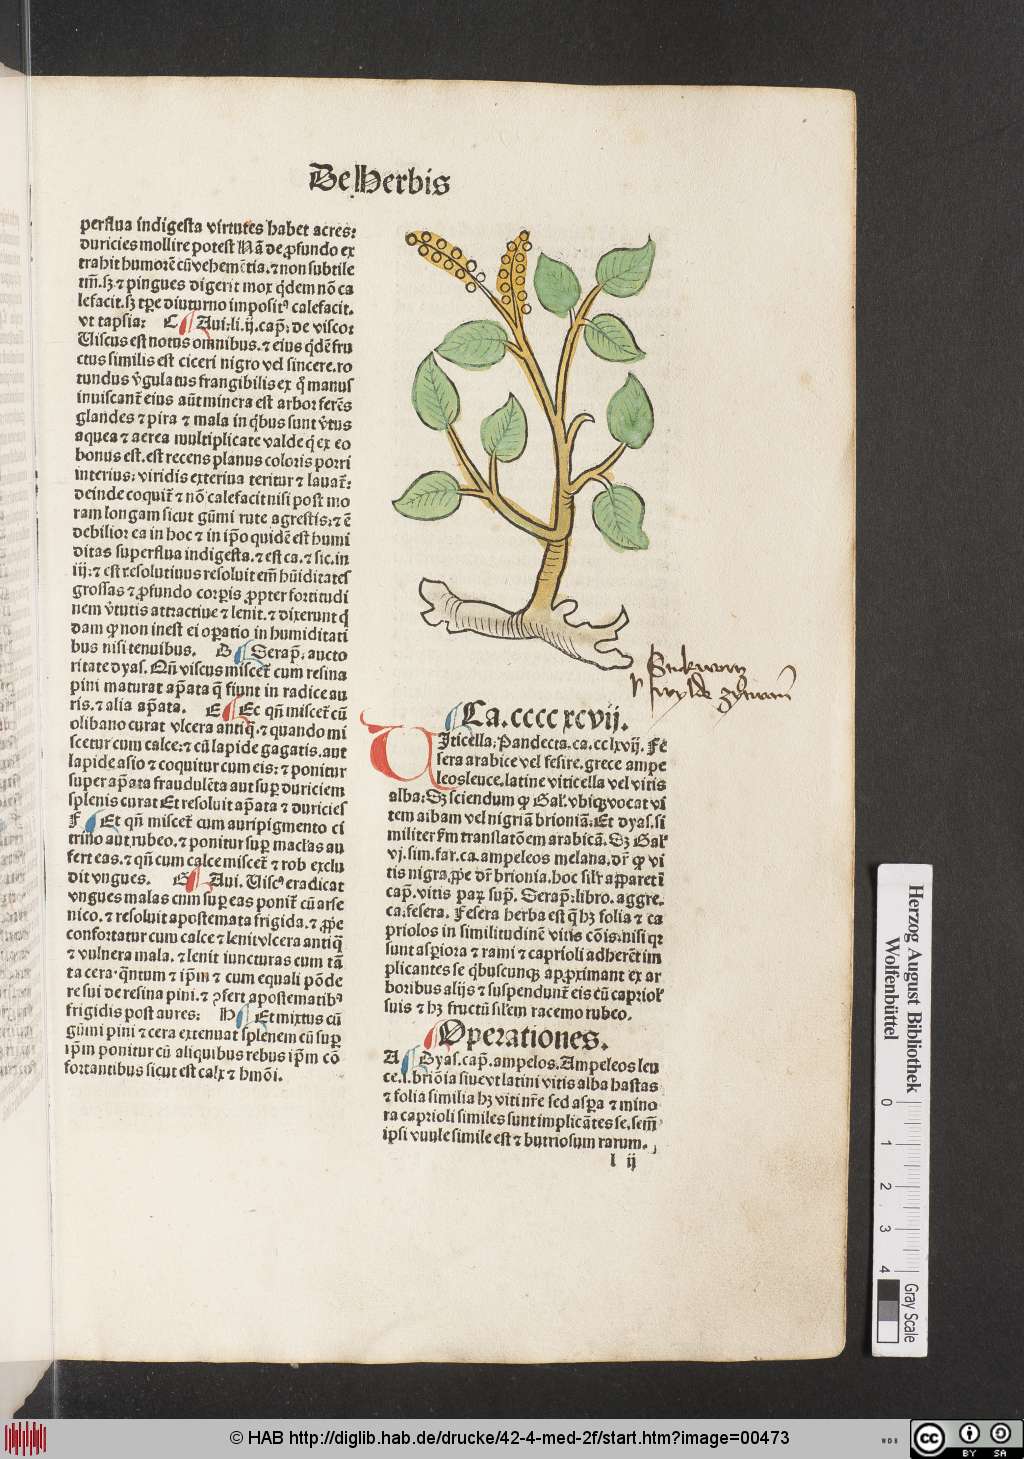 De Herbis
perflua indigesta virtutes habet acres:
duricies mollire potest Nā de ꝓfundo ex
trahit humorē cū vehemētia. ⁊ non subtile
tm̄. sꝫ ⁊ pingues digerit mox q̄dem nō ca
lefacit. sꝫ tꝑe diuturno impositꝰ calefacit.
vt tapsia: C Aui: li. ij. cap̄: de viscoː
Viscus est notus omnibus. ⁊ eius qd̄ē fru
ctus similis est ciceri nigro vel sincere. ro
tundus v̄gulatus frangibilis ex q̄ manus
inuiscant᷑ eius aūt minera est arbor ferēs
glandes ⁊ pira ⁊ mala in q̄bus sunt v̄tus
aquea ⁊ aerea multiplicate valde q̄ ex eo
bonus est. est recens planus coloris porri
interius: viridis exterius teritur ⁊ lauat᷑:
deinde coquit᷑ ⁊ nō calefacit nisi post mo
ram longam sicut gūmi rute agrestis: ⁊ ē
debilior ea in hoc ⁊ in ip̄o quidē est humi
ditas superflua indigesta. ⁊ est ca. ⁊ sic. in
iij: ⁊ est resolutiuus resoluit em̄ hūiditates
grossas ⁊ ꝓfundo corꝑis ꝓpter fortitudi
nem v̄tutis attractiue ⁊ lenit. ⁊ dixerunt q̄
dam ꝙ non inest ei oꝑatio in humiditati
bus nisi tenuibus. D Serap̄: aucto
ritate dyas. Qn̄ viscus miscet᷑ cum resina
pini maturat ap̄ata q̄ fiunt in radice au
ris. ⁊ alia ap̄ata. E Et qn̄ miscet᷑ cū
olibano curat vlcera antiq̄. ⁊ quando mi
scetur cum calce: ⁊ cū lapide gagatis. aut
lapide asio ⁊ coquitur cum eis: ⁊ ponitur
super ap̄ata fraudulēta aut suꝑ duriciem
splenis curat Et resoluit ap̄ata ⁊ duricies
F Et qn̄ miscet᷑ cum auripigmento ci
trino aut rubeo. ⁊ ponitur suꝑ maclas au
fert eas. ⁊ qn̄ cum calce miscet᷑ ⁊ rob exclu
dit vngues. G Aui. Viscꝰ eradicat
vngues malas cum suꝑ eas ponit᷑ cū arse
nico. ⁊ resoluit apostemata frigida. ⁊ ꝓpe
confortatur cum calce ⁊ lenit vlcera antiq̄
⁊ vulnera mala. ⁊ lenit iuncturas cum tā
ta cera q̄ntum ⁊ ip̄m ⁊ cum equali pōde
re sui de resina pini. ⁊ ꝯfert apostematibꝰ
frigidis post aures: H Et mixtus cū
gūmi pini ⁊ cera extenuat splenem cū suꝑ
ip̄m ponitur cū aliquibus rebus ip̄m cō
fortantibus sicut est calx ⁊ hmōi.
wylde
Ca. cccc xcvij.
Viticella: Pandecta. ca. cc lxvij. Fe
sera arabice vel fesire. grece ampe
leosleuce. latine viticella vel vitis
alba: Sꝫ sciendum ꝙ Gal᷑. vbiqꝫ vocat vi
tem albam vel nigrā brioniā: Et dyas. si
militer ẜm translatōem arabicā. Sꝫ Gal᷑
vj. sim. far. ca. ampeleos melana. dr̄ ꝙ vi
tis nigra. ꝓpe dr̄ brionia. hoc sil᷑r apparet ī
cap̄. vitis par̄ sup̄. Serap̄: libro. aggre.
ca: fesera. Fesera herba est q̄ hꝫ folia ⁊ ca
priolos in similitudinē vitis cōis: nisi qꝛ
sunt asꝑiora ⁊ rami ⁊ caprioli adherēt im
plicantes se q̄buscunqꝫ apꝓximant ex ar
boribus alijs ⁊ suspendunt᷑ eis cū capriol᷑
suis ⁊ hꝫ fructū sil᷑em racemo rubeo.
Operationes.
A Dyas. cap̄. ampelos. Ampeleos leu
ce. i. briōia siue vt latini vitis alba hastas
⁊ folia similia hꝫ viti nr̄e sed asꝑa ⁊ mino
ra caprioli similes sunt implicātes se. sem̄
ipsi vuule simile est ⁊ butriosum rarum.
l ij
Herzog August Bibliothek
Wolfenbüttel
0 1 2 3 4
Gray Scale
© HAB http://diglib.hab.de/drucke/42-4-med-2f/start.htm?image=00473
WDB
cc BY SA